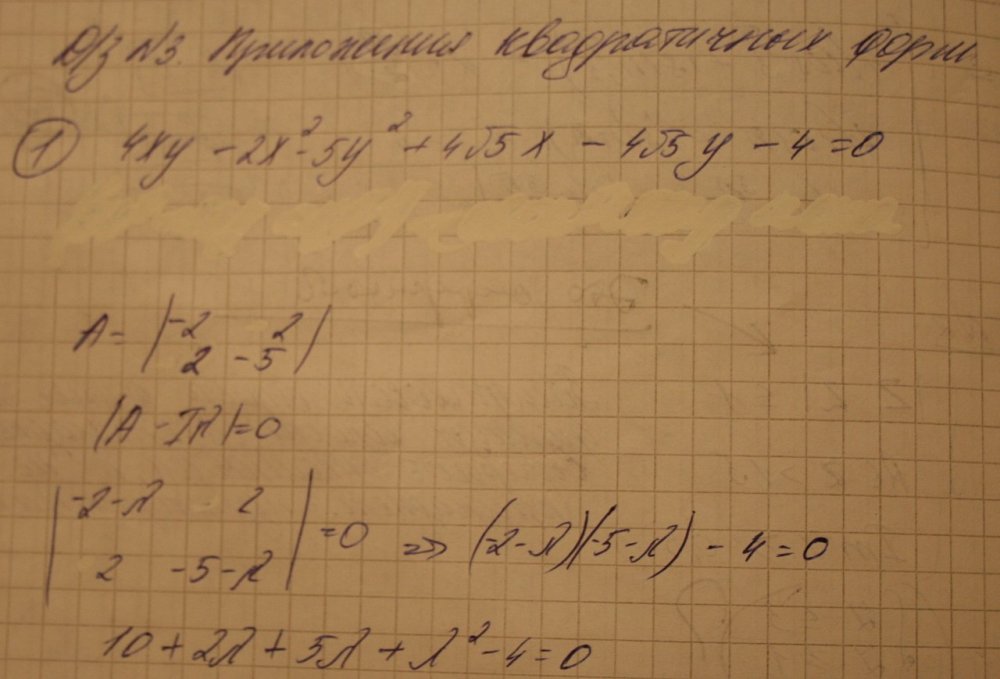 Д/З №3. Приложения квадратичных форм
1 4xy - 2x² - 5y² + 4√5 x - 4√5 y - 4 = 0
A = | -2 2 |
2 -5
|A - Iλ| = 0
| -2-λ 2 | = 0 => (-2-λ)(-5-λ) - 4 = 0
2 -5-λ
10 + 2λ + 5λ + λ² - 4 = 0